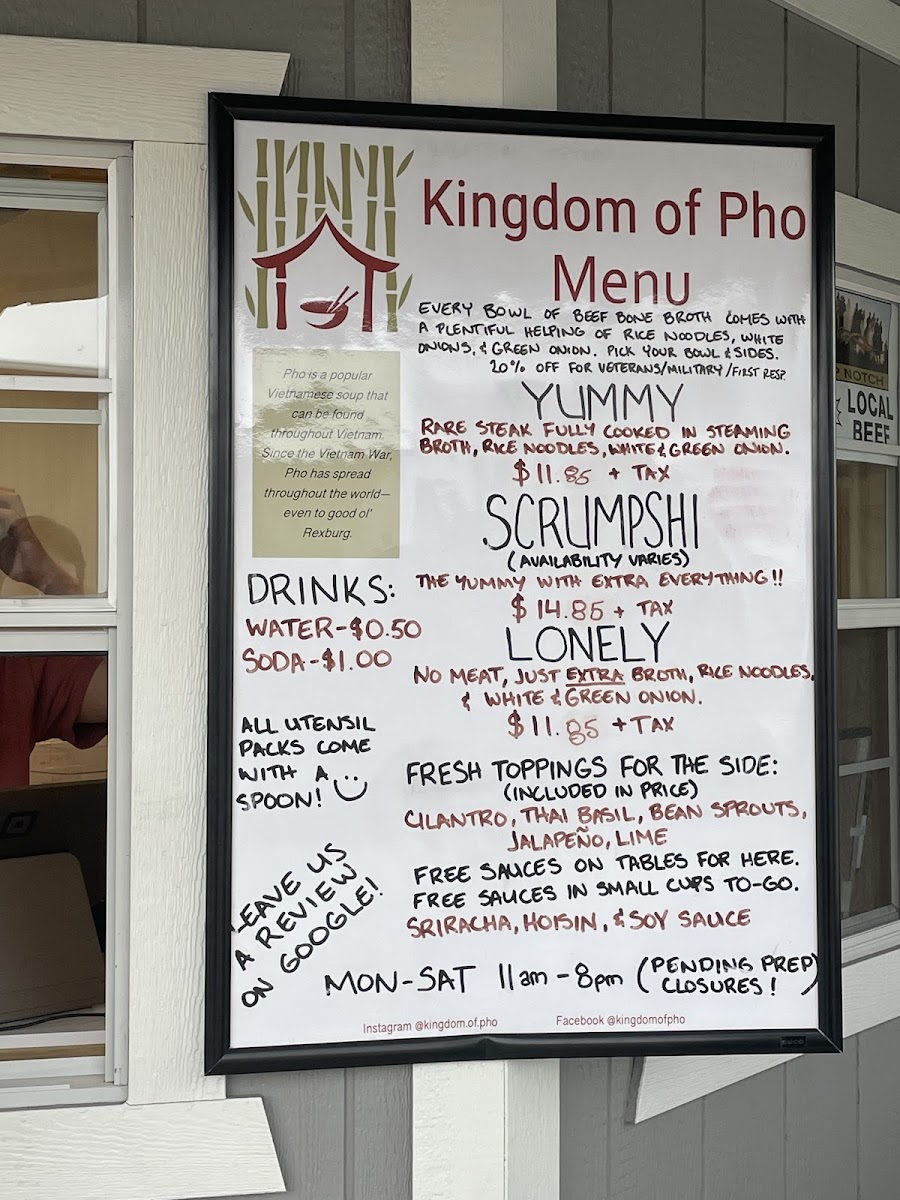 Kingdom of Pho
Menu
EVERY BOWL OF BEEF BONE BROTH COMES WITH
A PLENTIFUL HELPING OF RICE NOODLES, WHITE
ONIONS, & GREEN ONION. PICK YOUR BOWL & SIDES.
20% OFF FOR VETERANS/MILITARY/FIRST RESP.
Pho is a popular
Vietnamese soup that
can be found
throughout Vietnam.
Since the Vietnam War,
Pho has spread
throughout the world—
even to good ol'
Rexburg.
YUMMY
RARE STEAK FULLY COOKED IN STEAMING
BROTH, RICE NOODLES, WHITE & GREEN ONION.
$11.85 + TAX
SCRUMPSHI
(AVAILABILITY VARIES)
THE YUMMY WITH EXTRA EVERYTHING!!
$14.85 + TAX
LONELY
NO MEAT, JUST EXTRA BROTH, RICE NOODLES,
& WHITE & GREEN ONION.
$11.85 + TAX
DRINKS:
WATER-$0.50
SODA-$1.00
ALL UTENSIL
PACKS COME
WITH A
SPOON!
FRESH TOPPINGS FOR THE SIDE:
(INCLUDED IN PRICE)
CILANTRO, THAI BASIL, BEAN SPROUTS,
JALAPEÑO, LIME
FREE SAUCES ON TABLES FOR HERE.
FREE SAUCES IN SMALL CUPS TO-GO.
SRIRACHA, HOISIN, & SOY SAUCE
LEAVE US
A REVIEW
ON GOOGLE!
MON-SAT 11am-8pm (PENDING PREP
CLOSURES!)
Instagram @kingdom.of.pho
Facebook @kingdomofpho
NOTCH
LOCAL
BEEF